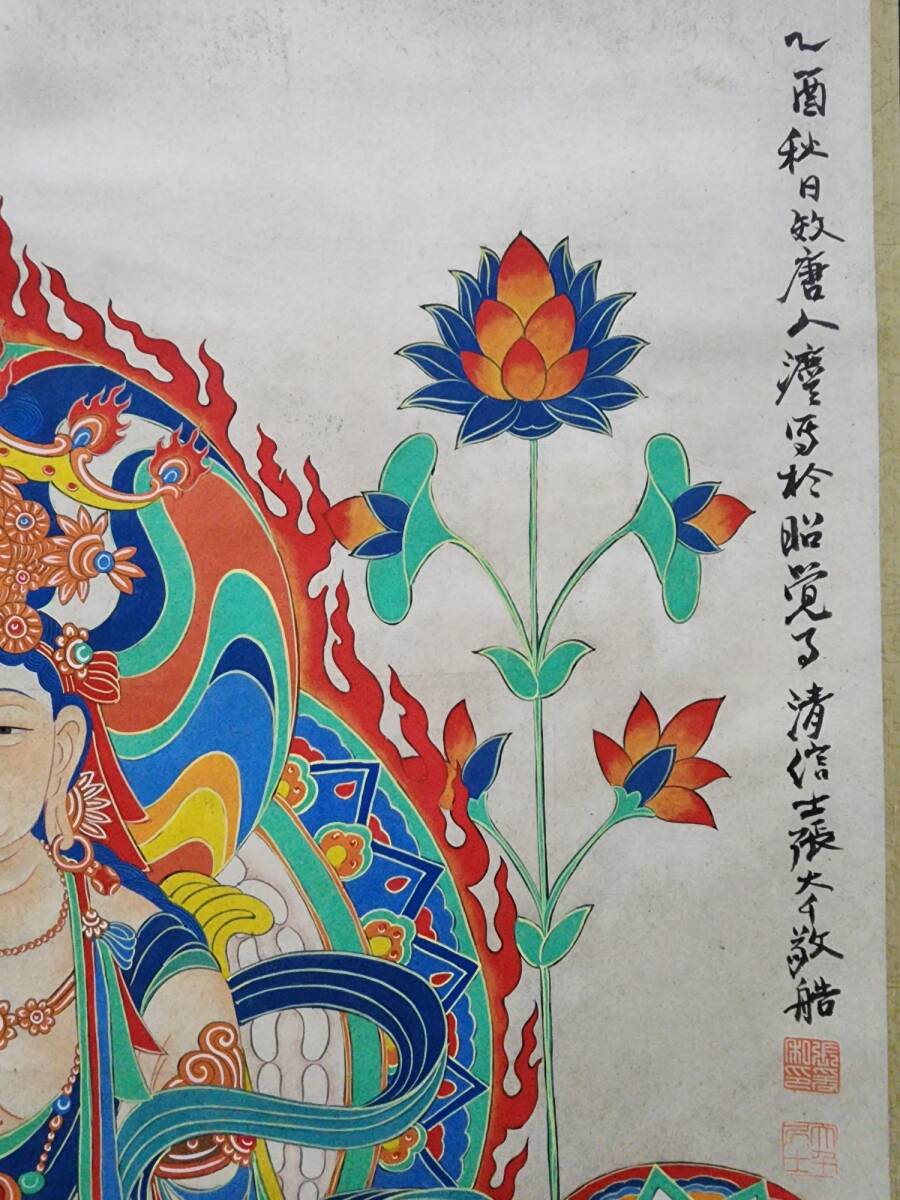 乙酉秋日效唐人灋写於昭覺寺 清信士張大千敬艁
張爰私印
大千居士